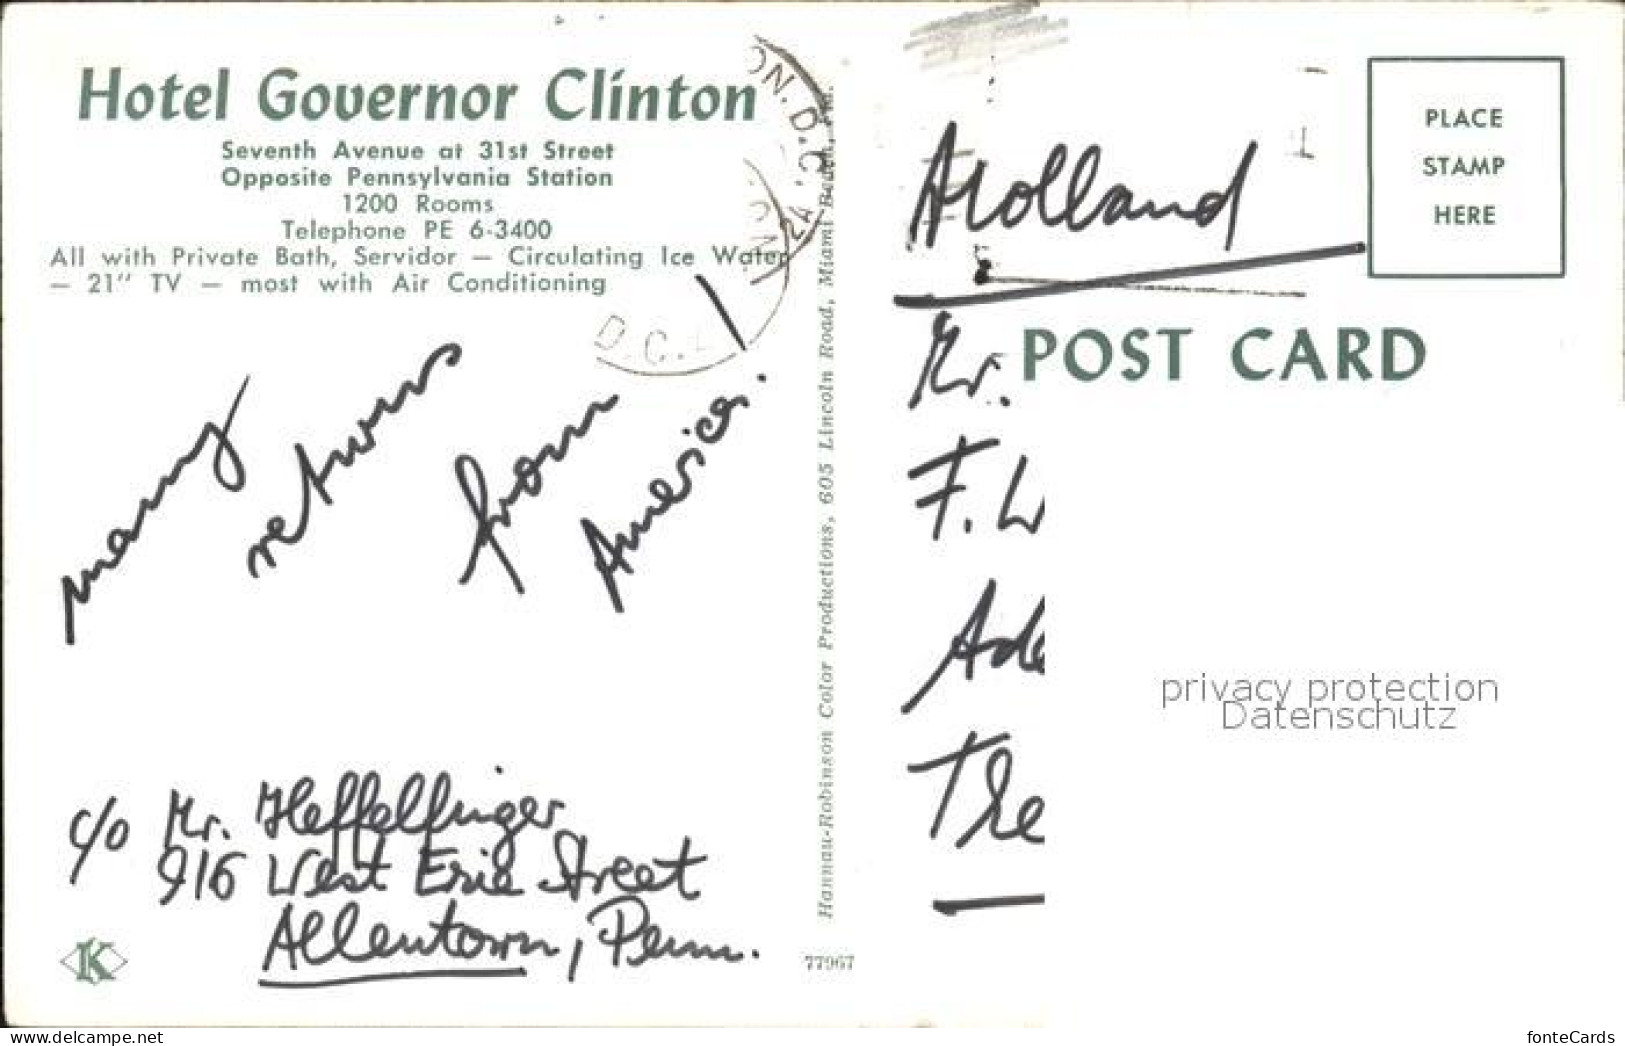 Hotel Governor Clinton
Seventh Avenue at 31st Street
Opposite Pennsylvania Station
1200 Rooms
Telephone PE 6-3400
All with Private Bath, Servidor — Circulating Ice Water
— 21" TV — most with Air Conditioning
many returns from America.
c/o Mr. Heffelfinger
916 West Erie Street
Allentown, Penn.
K
Hannau-Robinson Color Productions, 605 Lincoln Road, Miami Beach, Fla.
77967
N. D.C.
D.C.
Holland
PLACE
STAMP
HERE
Mr.
POST CARD
F. W
Ade
The
privacy protection
Datenschutz
www.delcampe.net
fonteCards